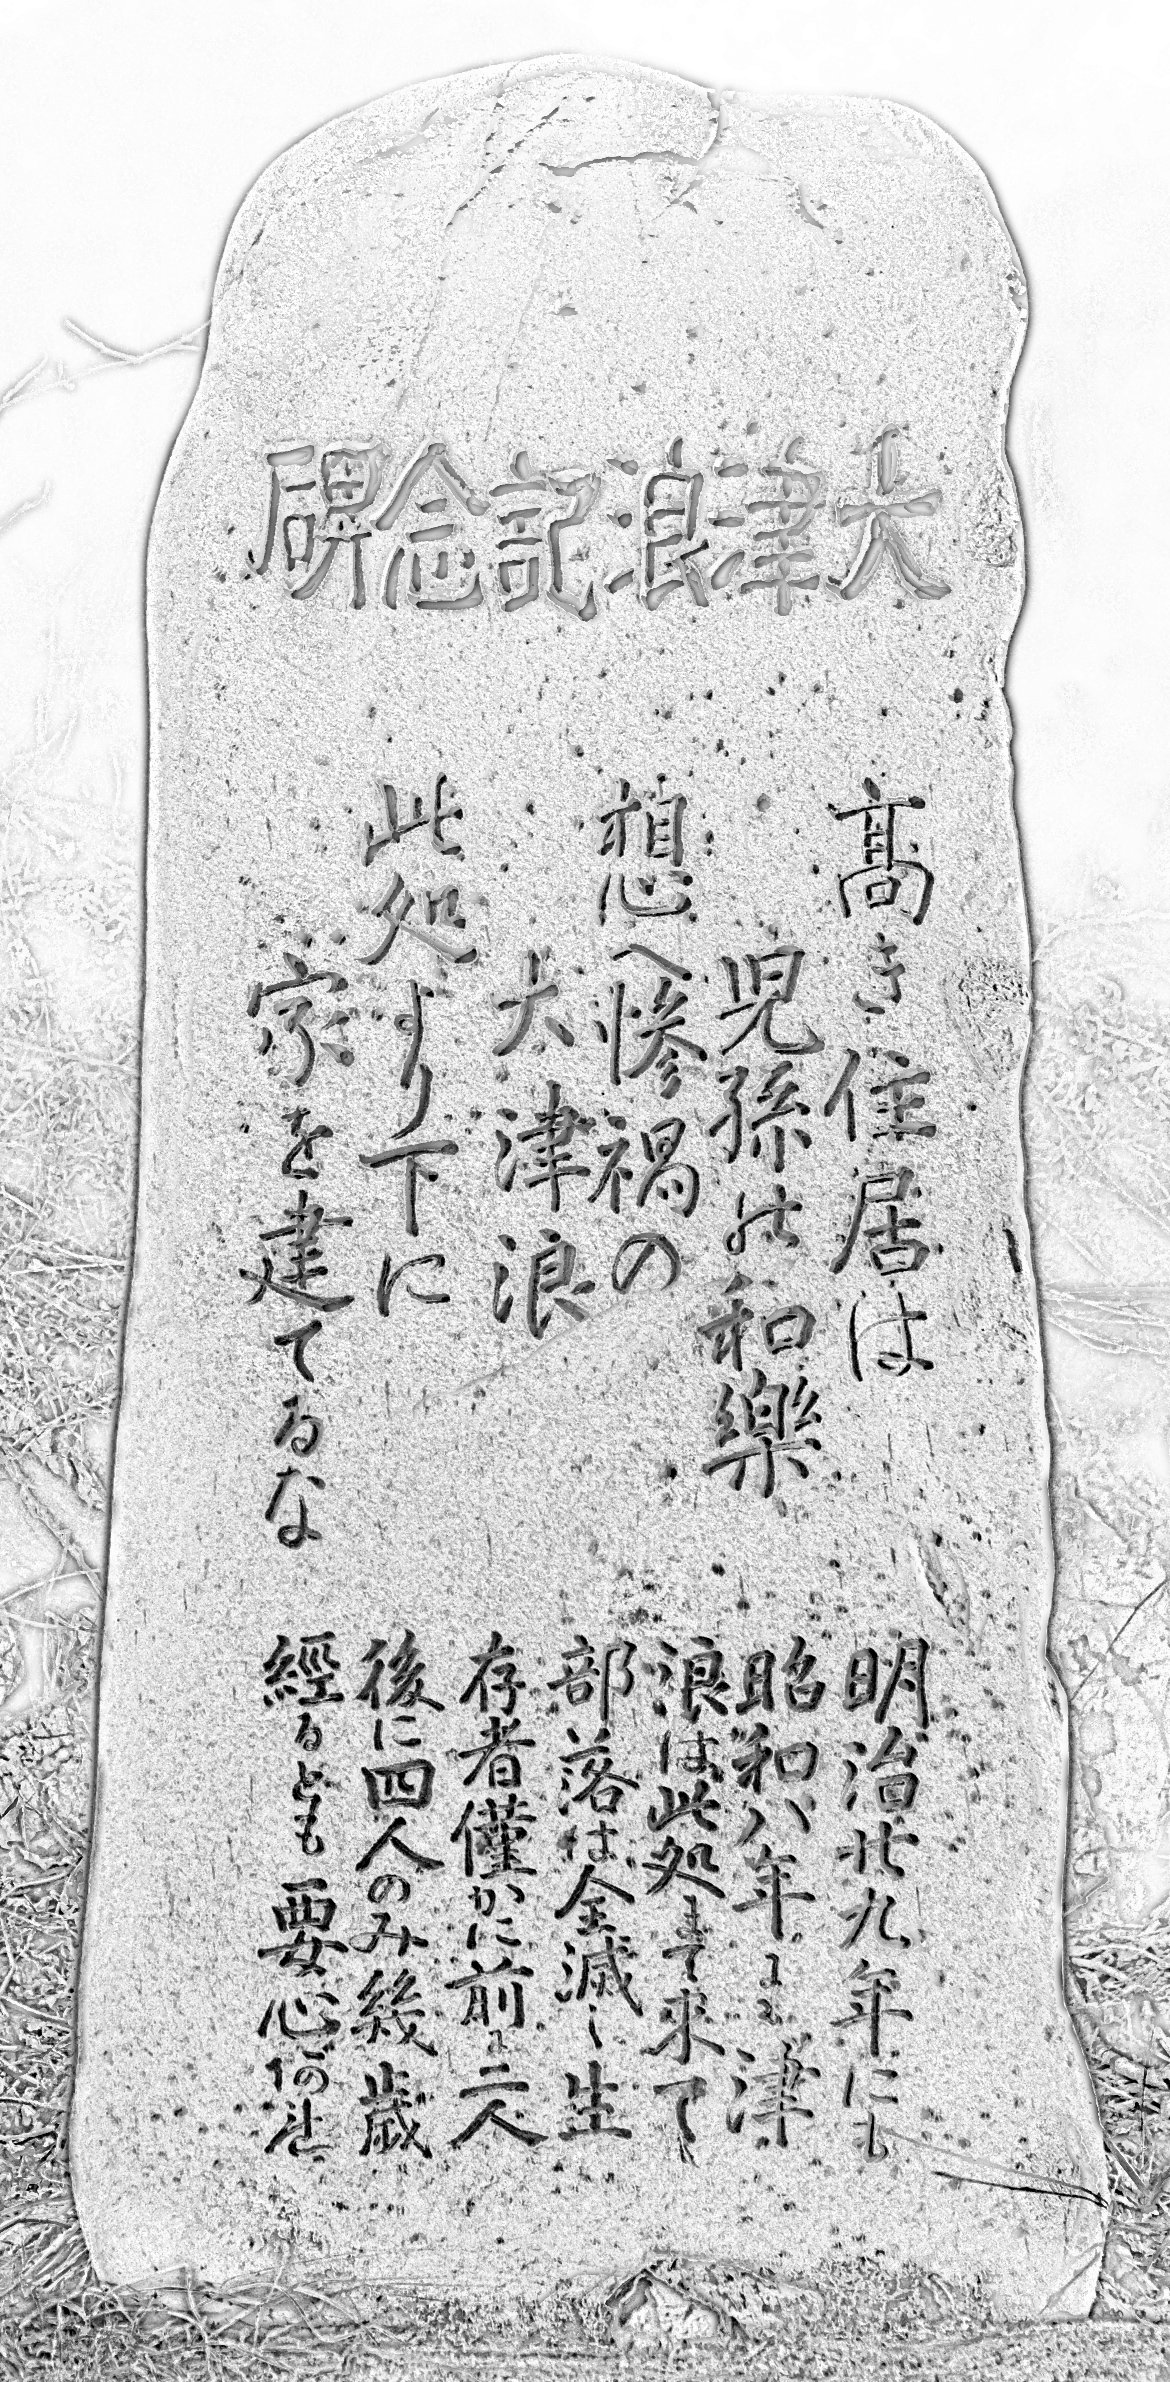 大津浪記念碑
髙き住居は
児孫の和樂
想へ惨禍の
大津浪
此処より下に
家を建てるな
明治廿九年にも
昭和八年にも津
浪は此処まて来て
部落は全滅し生
存者僅かに前に二人
後に四人のみ幾歳
經るとも要心あれ